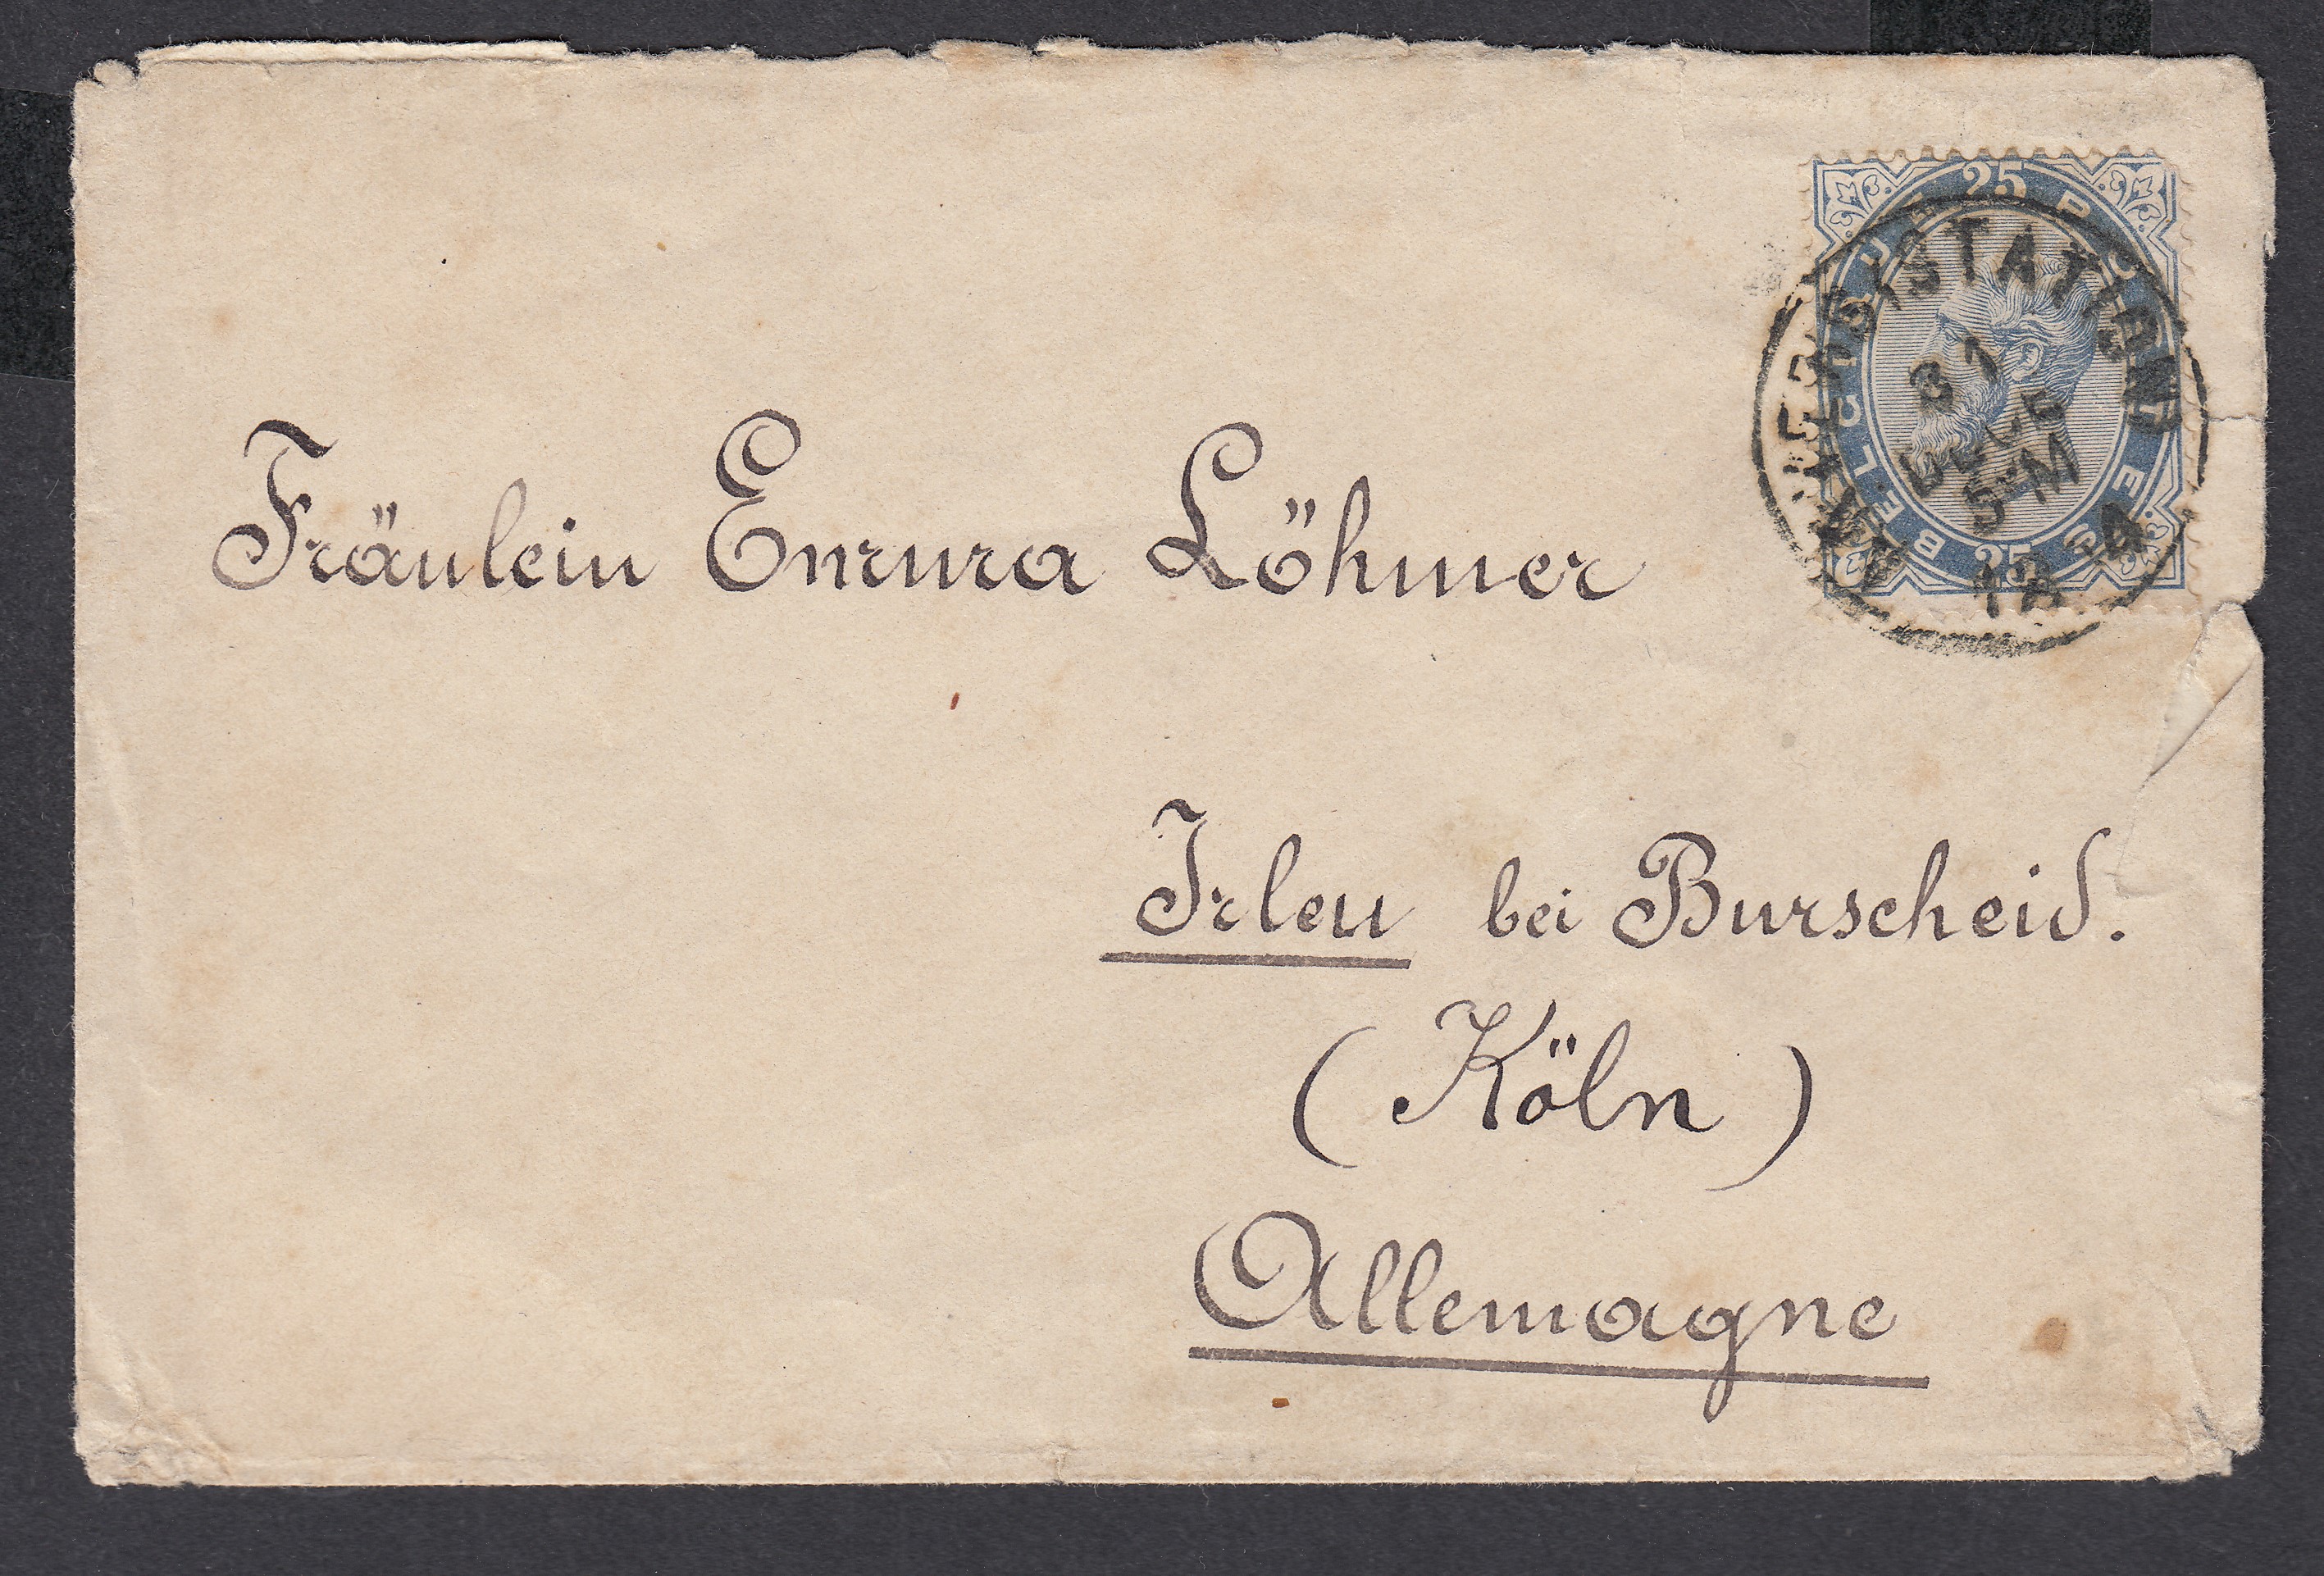 Fräulein Emma Löhmer
Irlen bei Burscheid.
(Köln)
Allemagne
25
BELGIQUE
25
(STATION)
31
DECE
5-M